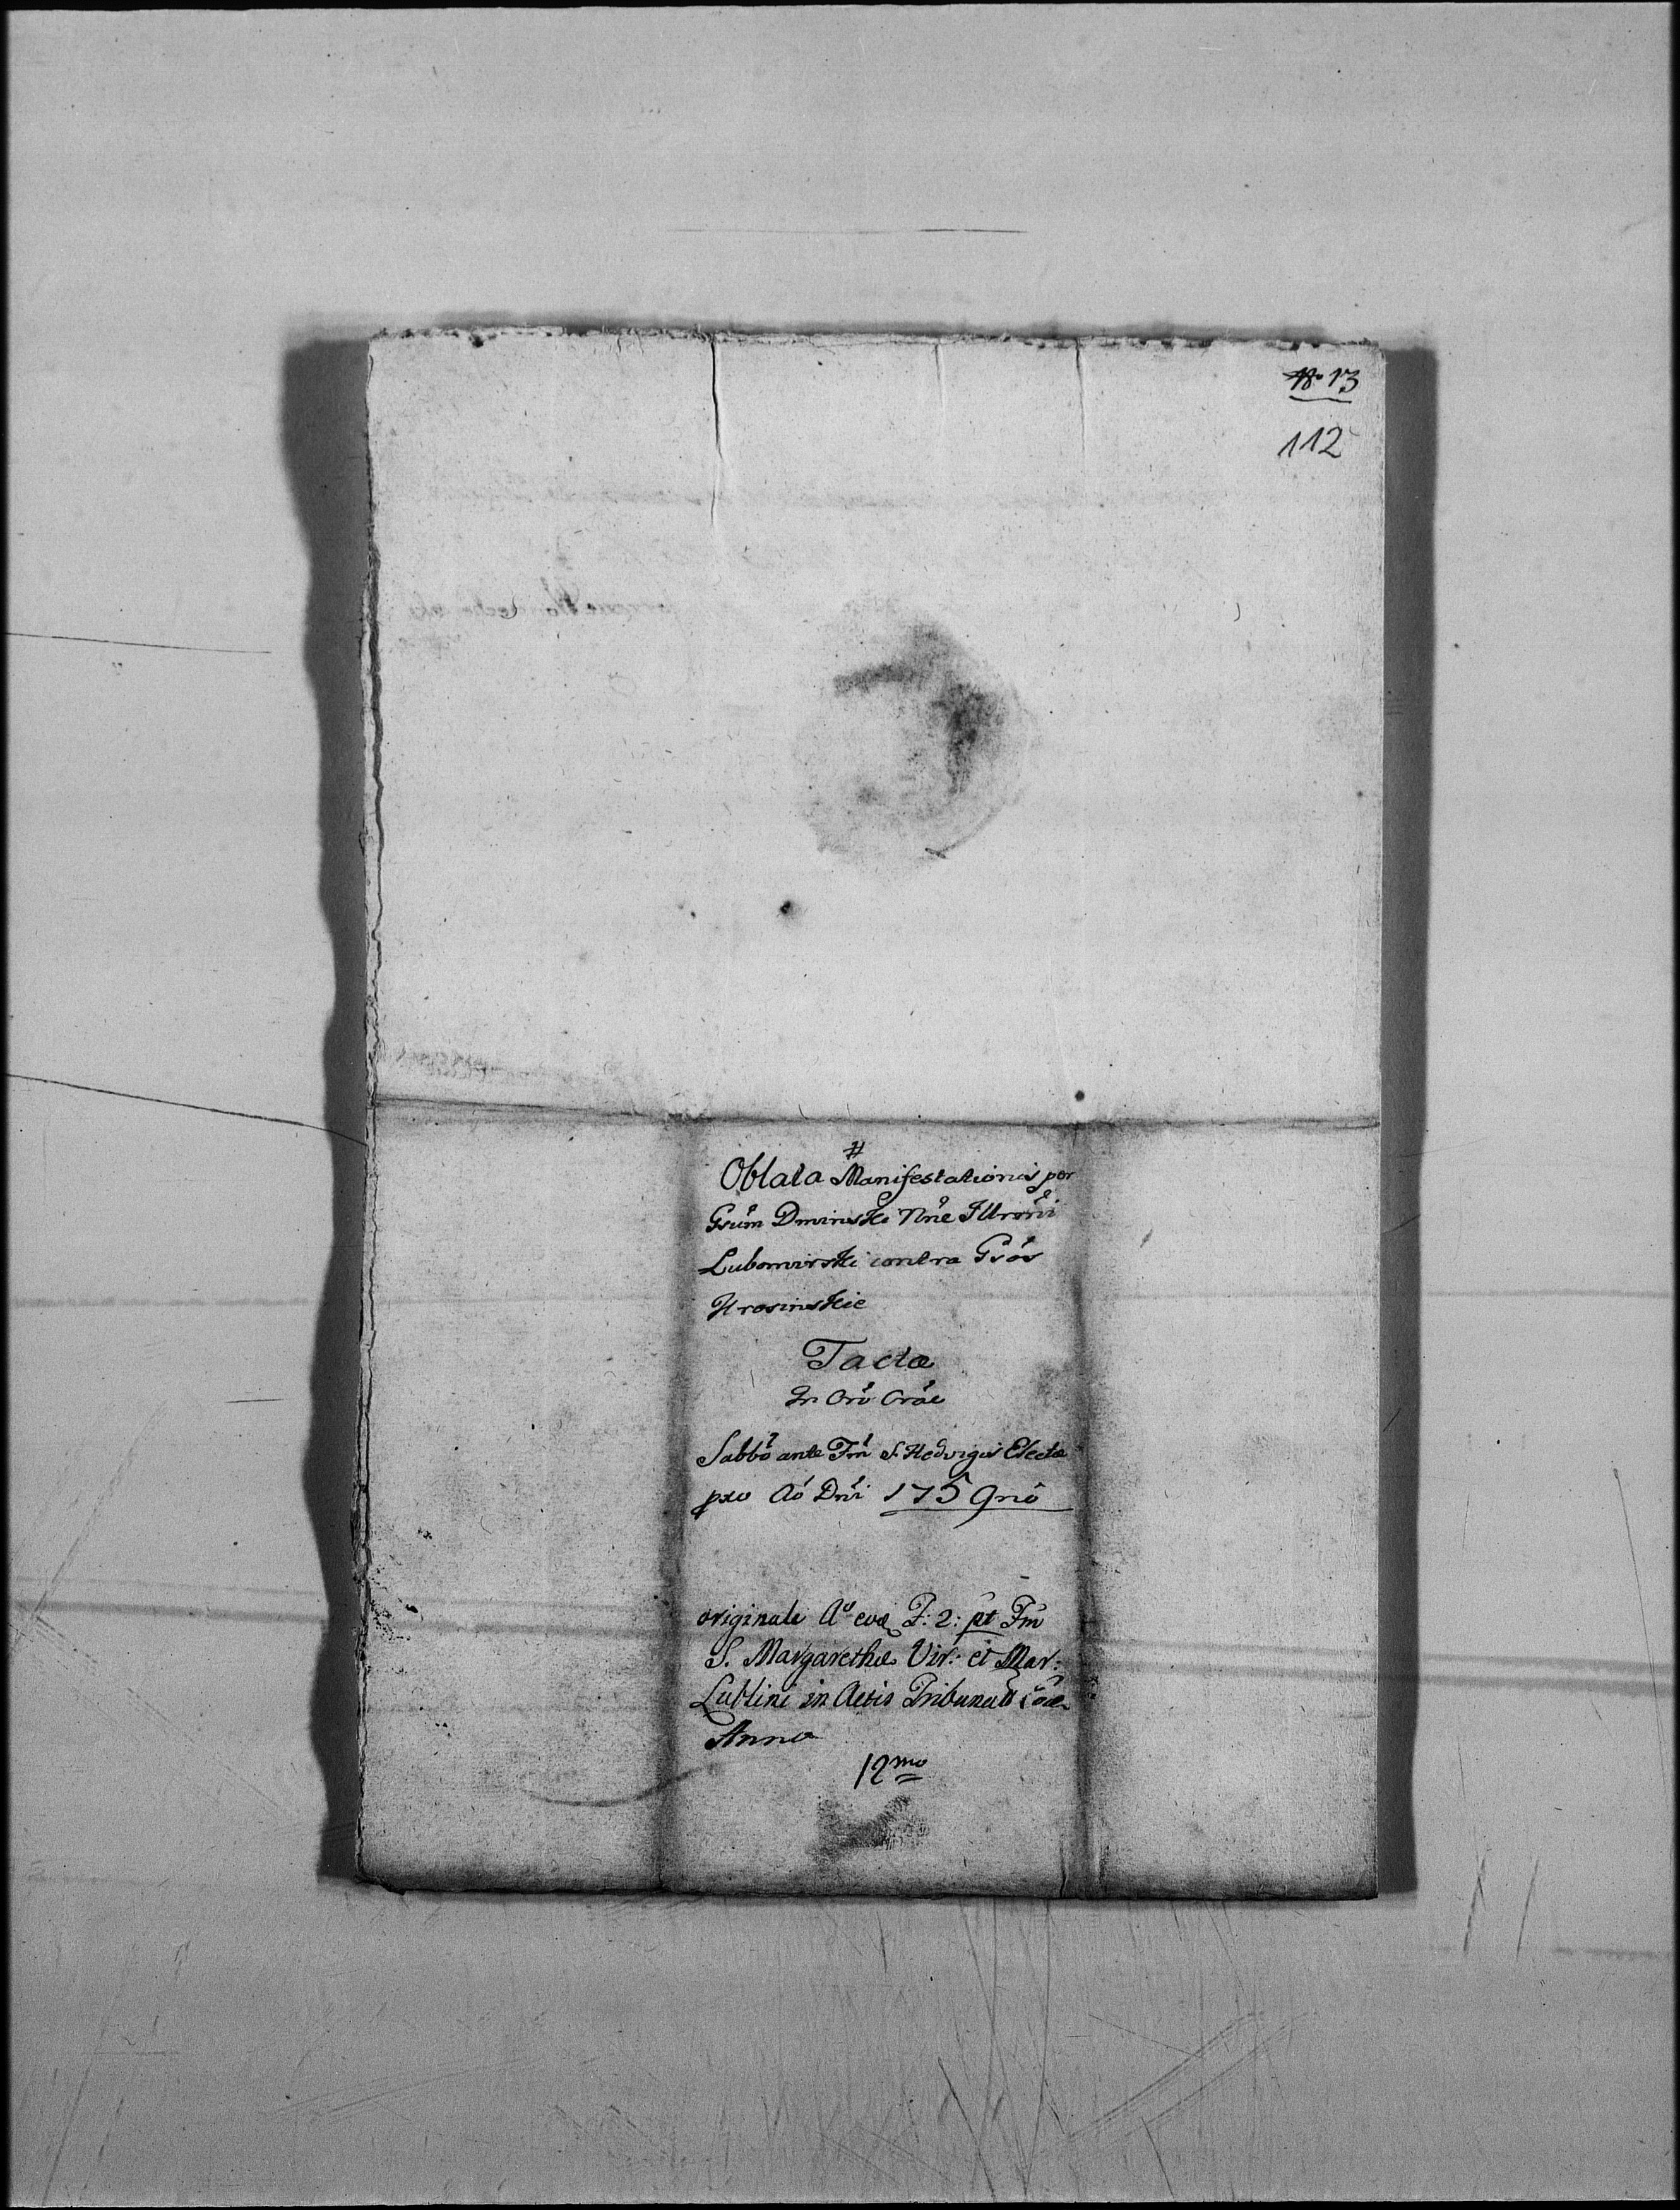 No 13
112
#
Oblata Manifestationis per
Gsum Dminski Nne Illrõrũ
Lubomirski contra Gsõs
Krosinskie
Facta
In Crõ Crãe
Sabbõ ante Fm̃ S. Hedvigis Electæ
pxo Aõ Dni 1759nõ
originale Aº eod F: 2: pt Fm̃
S. Margarethæ Vir: et Mar:
Lublini in Actis Tribunalł
Anno
12mo